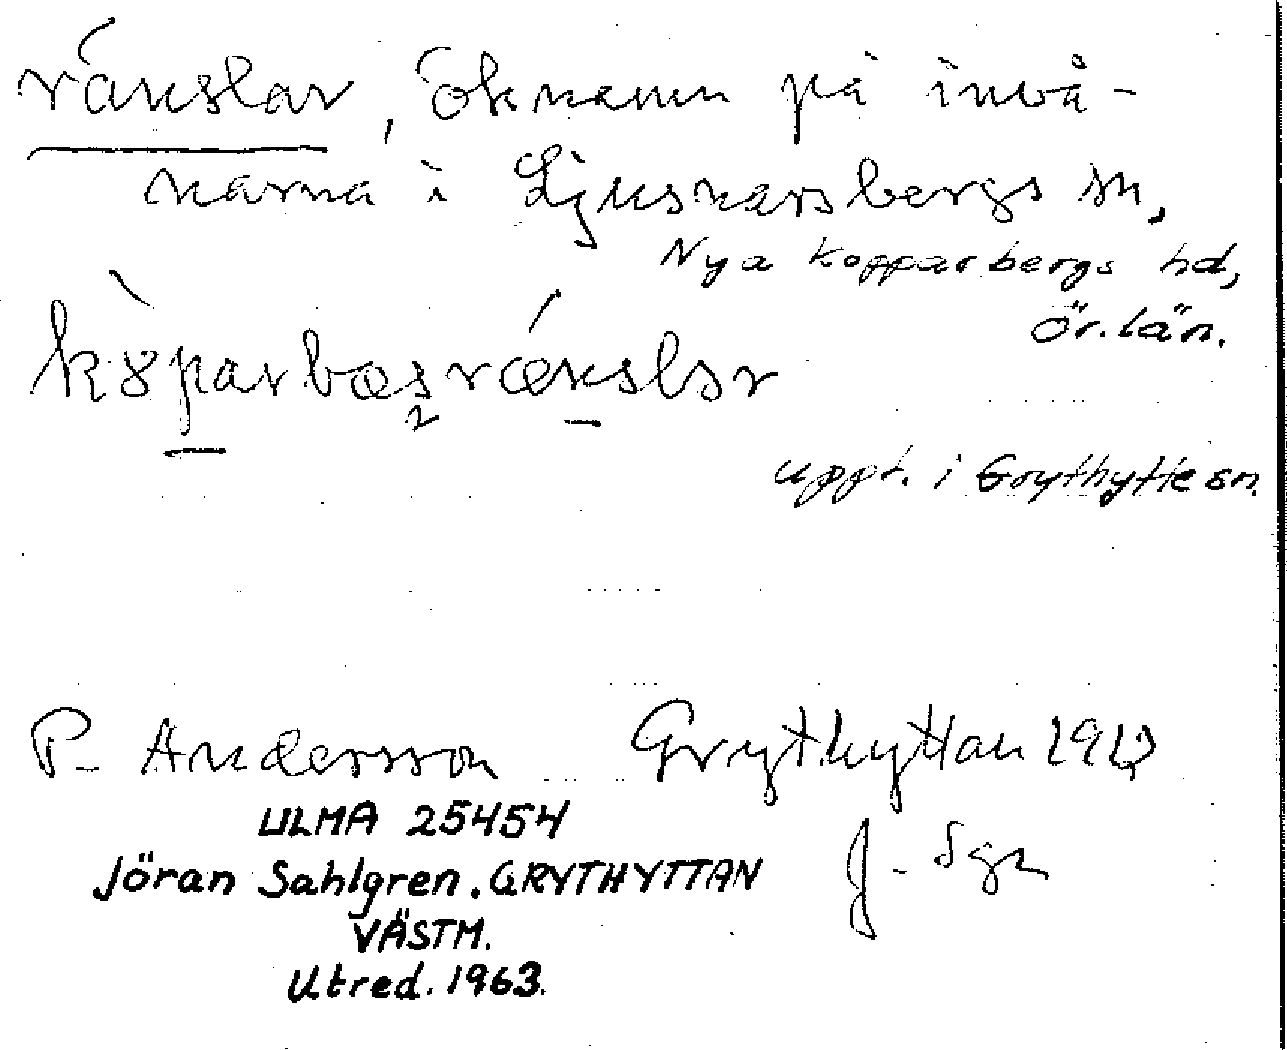 ränslar, öknamn på invå-
narna i Ljusnarsbergs sn,
Nya Kopparbergs hd,
Ör. län.
uppt. i Grythytte sn.
P. Andersson Grythyttan
ULMA 25454
J. Sgn
Jöran Sahlgren. GRYTHYTTAN
VÄSTM.
Utred. 1963.